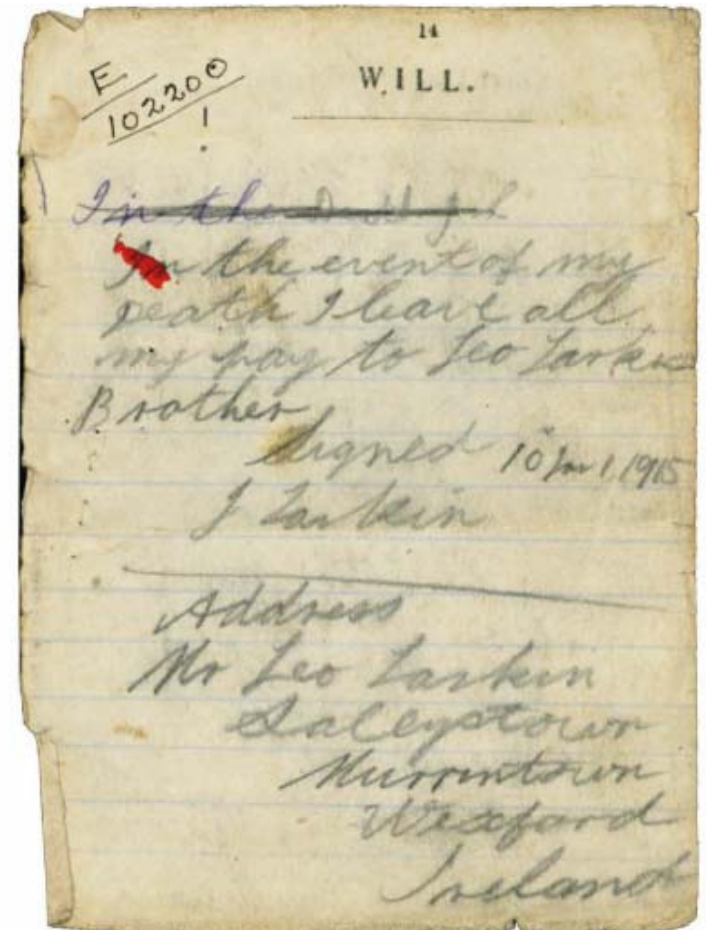 14
WILL.
E
102200
1
In the
In the event of my
Death I leave all
my pay to Leo Larkin
Brother
Signed 10 1915
J Larkin
Address
Mr Leo Larkin
Saleystown
Murrintown
Wexford
Ireland